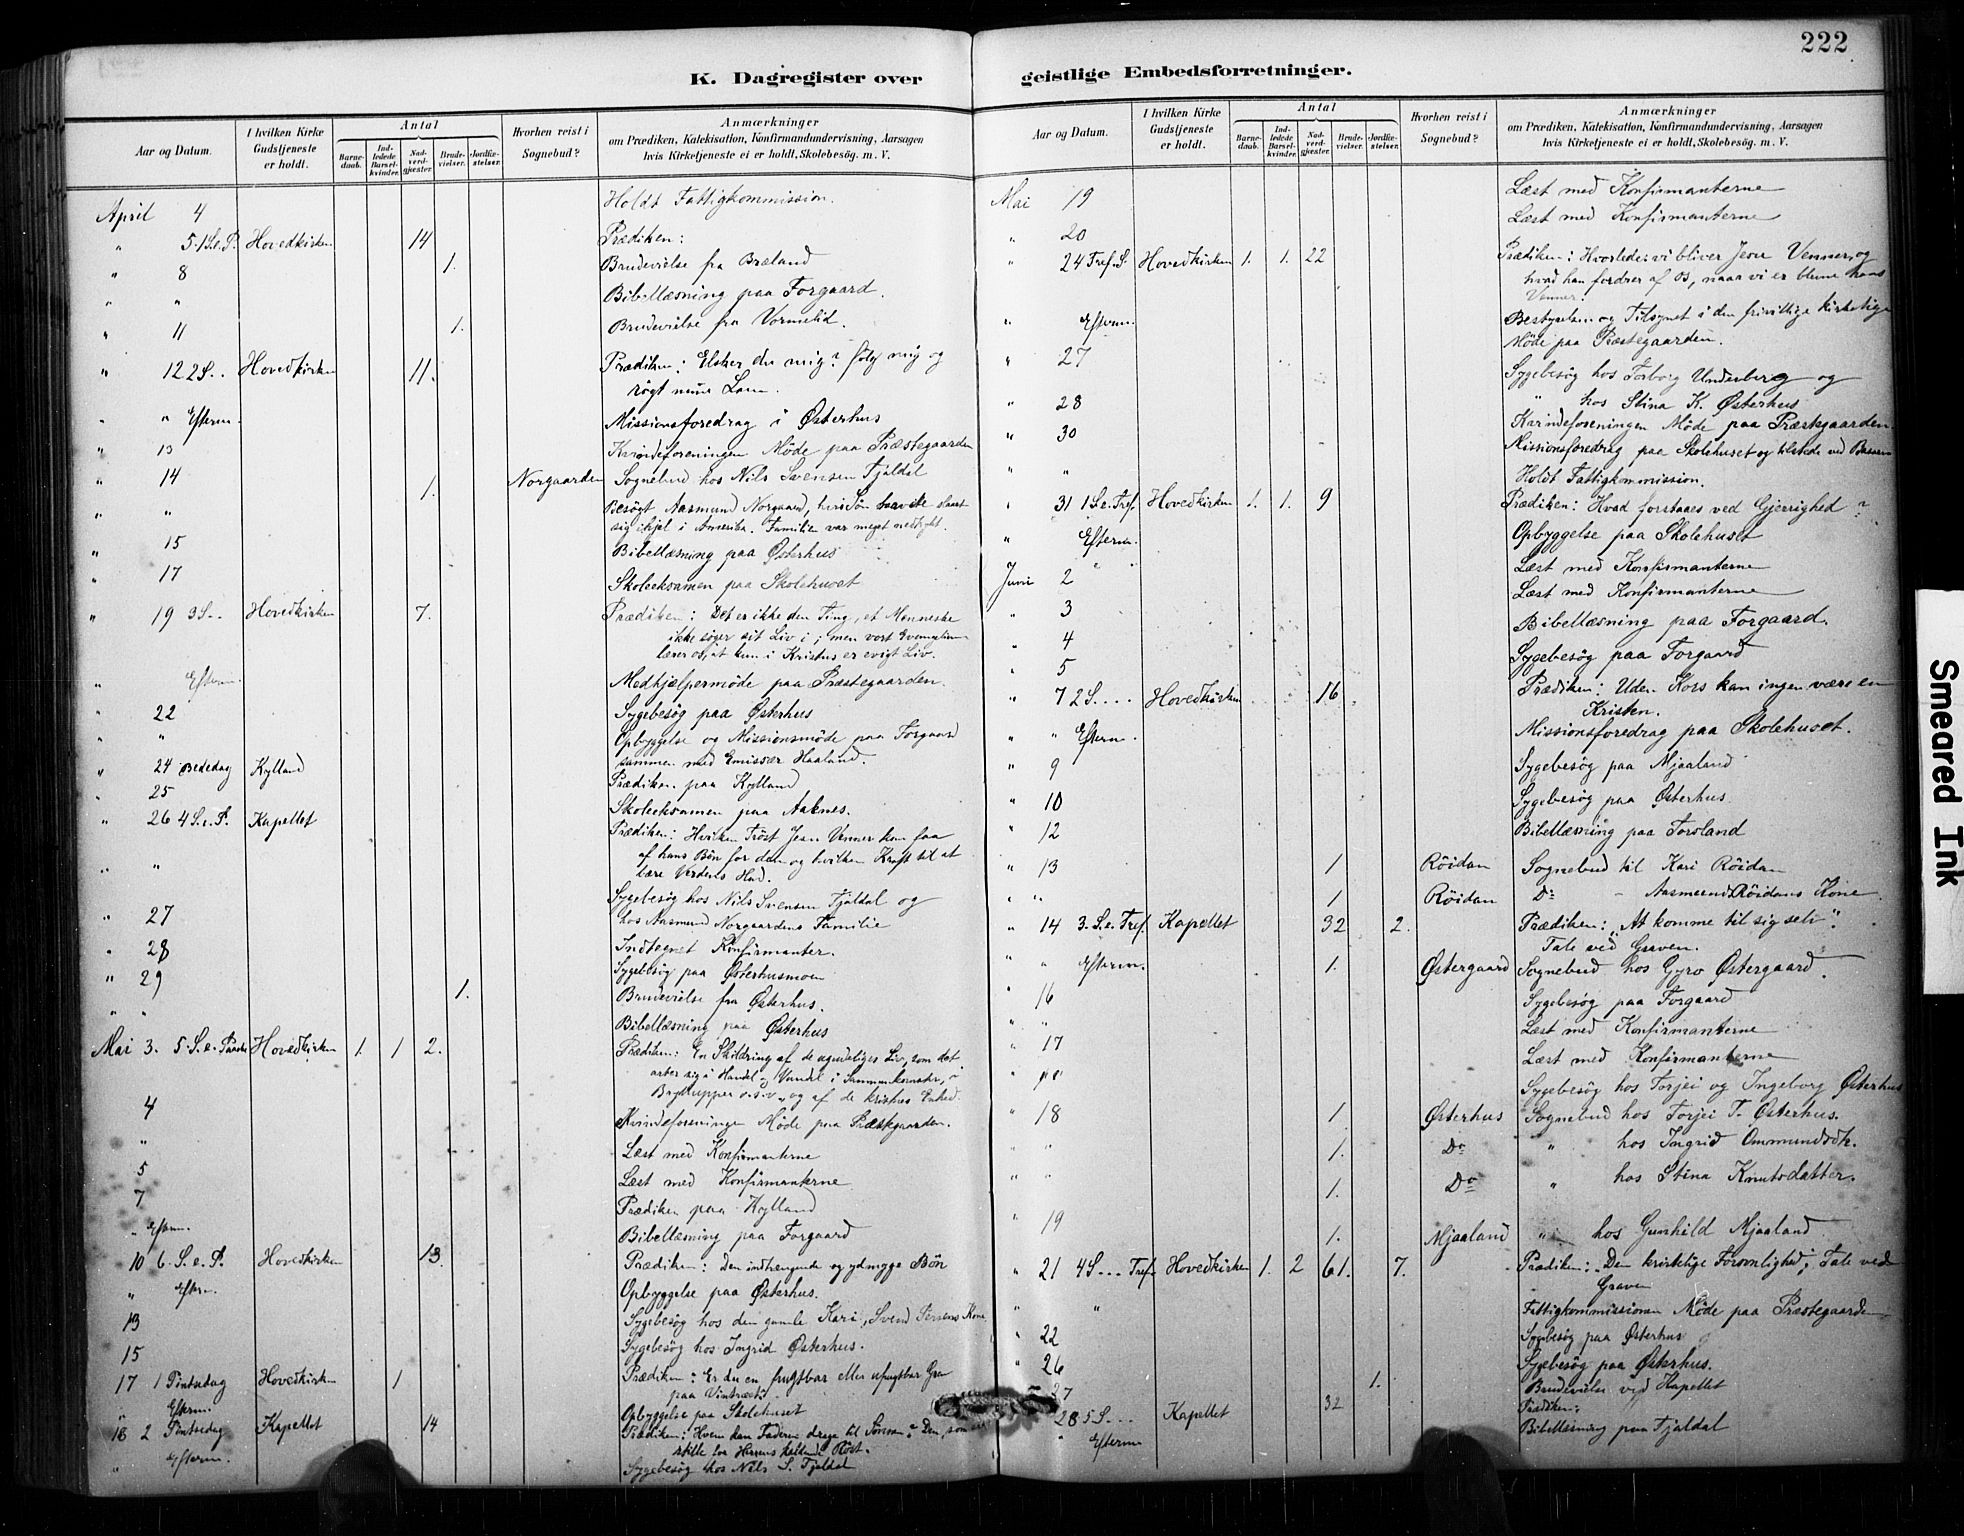 222
K. Dagregister over geistlige Embedsforretninger.
Aar og Datum. I hvilken Kirke Gudstjeneste er holdt. Antal Barnedaab. Indledede Barselkvinder. Nadverdgjæster. Brudevielser. Jordfæstelser. Hvorhen reist i Sognebud? Anmærkninger om Prædiken, Katekisation, Konfirmandundervisning, Aarsagen hvis Kirketjeneste ei er holdt, Skolebesøg. m. V.
April 4 Holdt Fattigkommission.
" 5 1 S.e.P. Hovedkirken 14 Prædiken:
" 8 1. Brudevielse fra Bræland
" " Bibellæsning paa Forgaard.
" 11 1. Brudevielse fra Vormelid.
" 12 2 S.. Hovedkirken 11. Prædiken: Elsker du mig? følg mig og
røgt mine Lam.
" " Efterm. Missionsforedrag i Østerhus
" 13 Kvindeforeningen Møde paa Præstegaarden
" 14 1. Norgaarden Sognebud hos Nils Svensen Fjaldal
" " Besøgt Aasmund Norgaard, hvis Søn havde skudt
sig ihjel i Amerika. Familien var meget nedtrykt.
" 15 Bibellæsning paa Østerhus
" 17 Skoleeksamen paa Skolehuset
" 19 3 S.. Hovedkirken 7. Prædiken: Det er ikke den Ting, et Menneske
ikke søger sit Liv i; men vort Evangelium
lærer os, at kun i Kristus er evigt Liv.
" Efterm. Medhjælpermøde paa Præstegaarden.
" 22 Sygebesøg paa Østerhus
" " Opbyggelse og Missionsmøde paa Forgaard
sammen med Emissær Haaland.
" 24 Bededag Kylland Prædiken paa Kylland
" 25 Skoleeksamen paa Aaknes.
" 26 4 S.e.P. Kapellet Prædiken: Hvilken Trøst Jesu Venner kan faa
af hans Bøn for dem og hvilken Kraft til at
bære Verdens Had.
" 27 Sygebesøg hos Nils Svensen Fjaldal og
hos Aasmund Norgaardens Familie
" 28 Indtegnet Konfirmanter.
" 29 Sygebesøg paa Østerhusmoen
" " 1. Brudevielse fra Østerhus.
Bibellæsning paa Østerhus
Mai 3. 5 S.e. Paaske Hovedkirken 1. 1 2. Prædiken: En Skildring af de ugudeliges Liv, som det
arter sig i Handel og Vandel i Sammenkomster, i
Brylluppper o.s.v., og af de kristnes Enhed.
4 Kvindeforeningen Møde paa Præstegaarden.
" Læst med Konfirmanterne
5 Læst med Konfirmanterne
7 Prædiken paa Kylland
" Efterm. Bibellæsning paa Forgaard
10 6. S.e.P. Hovedkirken 13. Prædiken: Den indtrængende og ydmyge Bøn
" Efterm. Opbyggelse paa Østerhus.
13 Sygebesøg hos den gamle Kari, Svend Kone
15 Sygebesøg hos Ingrid Østerhus.
17 1 Pintsedag Hovedkirken 1 Prædiken: Er du en frugtbar eller ufrugtbar Gren
paa Vintræet?
" Efterm. Opbyggelse paa Skolehuset
18 2 Pintsedag Kapellet 14 Prædiken: Hvem kan Faderen drage til Sønnen? Den, som
stille for Herrens kaldende Røst.
" Efterm. Sygebesøg hos Nils S. Fjaldal
Aar og Datum. I hvilken Kirke Gudstjeneste er holdt. Antal Barnedaab. Indledede Barselkvinder. Nadverdgjæster. Brudevielser. Jordfæstelser. Hvorhen reist i Sognebud? Anmærkninger om Prædiken, Katekisation, Konfirmandundervisning, Aarsagen hvis Kirketjeneste ei er holdt, Skolebesøg. m. V.
Mai 19 Læst med Konfirmanterne
" 20 Læst med Konfirmanterne
" 24 Tref. S. Hovedkirken 1. 1. 22 Prædiken: Hvorledes vi bliver Jesu Venner, og
hvad han fordrer af os, naar vi er blevne hans
Venner.
" Efterm. Bestyrelsen og Tilsynet i den frivillige kirkelige
Møde paa Præstegaarden.
" 27 Sygebesøg hos Torborg Underberg og
" 28 " hos Stina K. Østerhus
" 30 Kvindeforeningen Møde paa Præstegaarden.
Missionsforedrag paa Skolehuset og tilstede ved
" " Holdt Fattigkommission.
" 31 1 S.e. Tref. Hovedkirken 1. 1. 9 Prædiken: Hvad forstaaes ved Gjerrighed?
" Efterm. Opbyggelse paa Skolehuset
Juni 2 Læst med Konfirmanterne
" 3 Læst med Konfirmanterne
" 4 Bibellæsning paa Forgaard.
" 5 Sygebesøg paa Forgaard
" 7 2 S.... Hovedkirken 16 Prædiken: Uden Kors kan ingen være en
Kristen.
" " Efterm. Missionsforedrag paa Skolehuset.
" 9 Sygebesøg paa Mjaaland
" 10 Sygebesøg paa Østerhus
" 12 Bibellæsning paa Forsland
" 13 1 Røidan Sognebud til Kari Røidan
" " 1 Røidan Do - Aasmund Røidans Kone
" 14 3. S.e. Tref. Kapellet 32 2. Prædiken: "At komme til sig selv".
Tale ved Graven.
" " Efterm. 1. Østergaard Sognebud hos Gyro Østergaard.
" 16 Sygebesøg paa Forgaard
" " Læst med Konfirmanterne
" 17 Læst med Konfirmanterne
" " Sygebesøg hos Torjei og Ingeborg Østerhus
" 18 1. Østerhus Sognebud hos Torjei T. Østerhus.
" " 1. Do " hos Ingrid Ommundsdtr.
" " 1. Do " hos Stina Knutsdatter.
" 19 1. Mjaaland " hos Gunhild Mjaaland.
" 21 4 S... Tref. Hovedkirken 1. 2 61. 7. Prædiken: "Den kristelige Forsonlighed"; Tale ved
Graven
" " Fattigkommissionen Møde paa Præstegaarden
" 22 Sygebesøg paa Østerhus
" 26 Sygebesøg paa Østerhus.
" 27 1. Brudevielse ved Kapellet
28 5 S... Kapellet 32 Prædiken:
" Efterm Bibellæsning paa Fjaldal
Smeared Ink